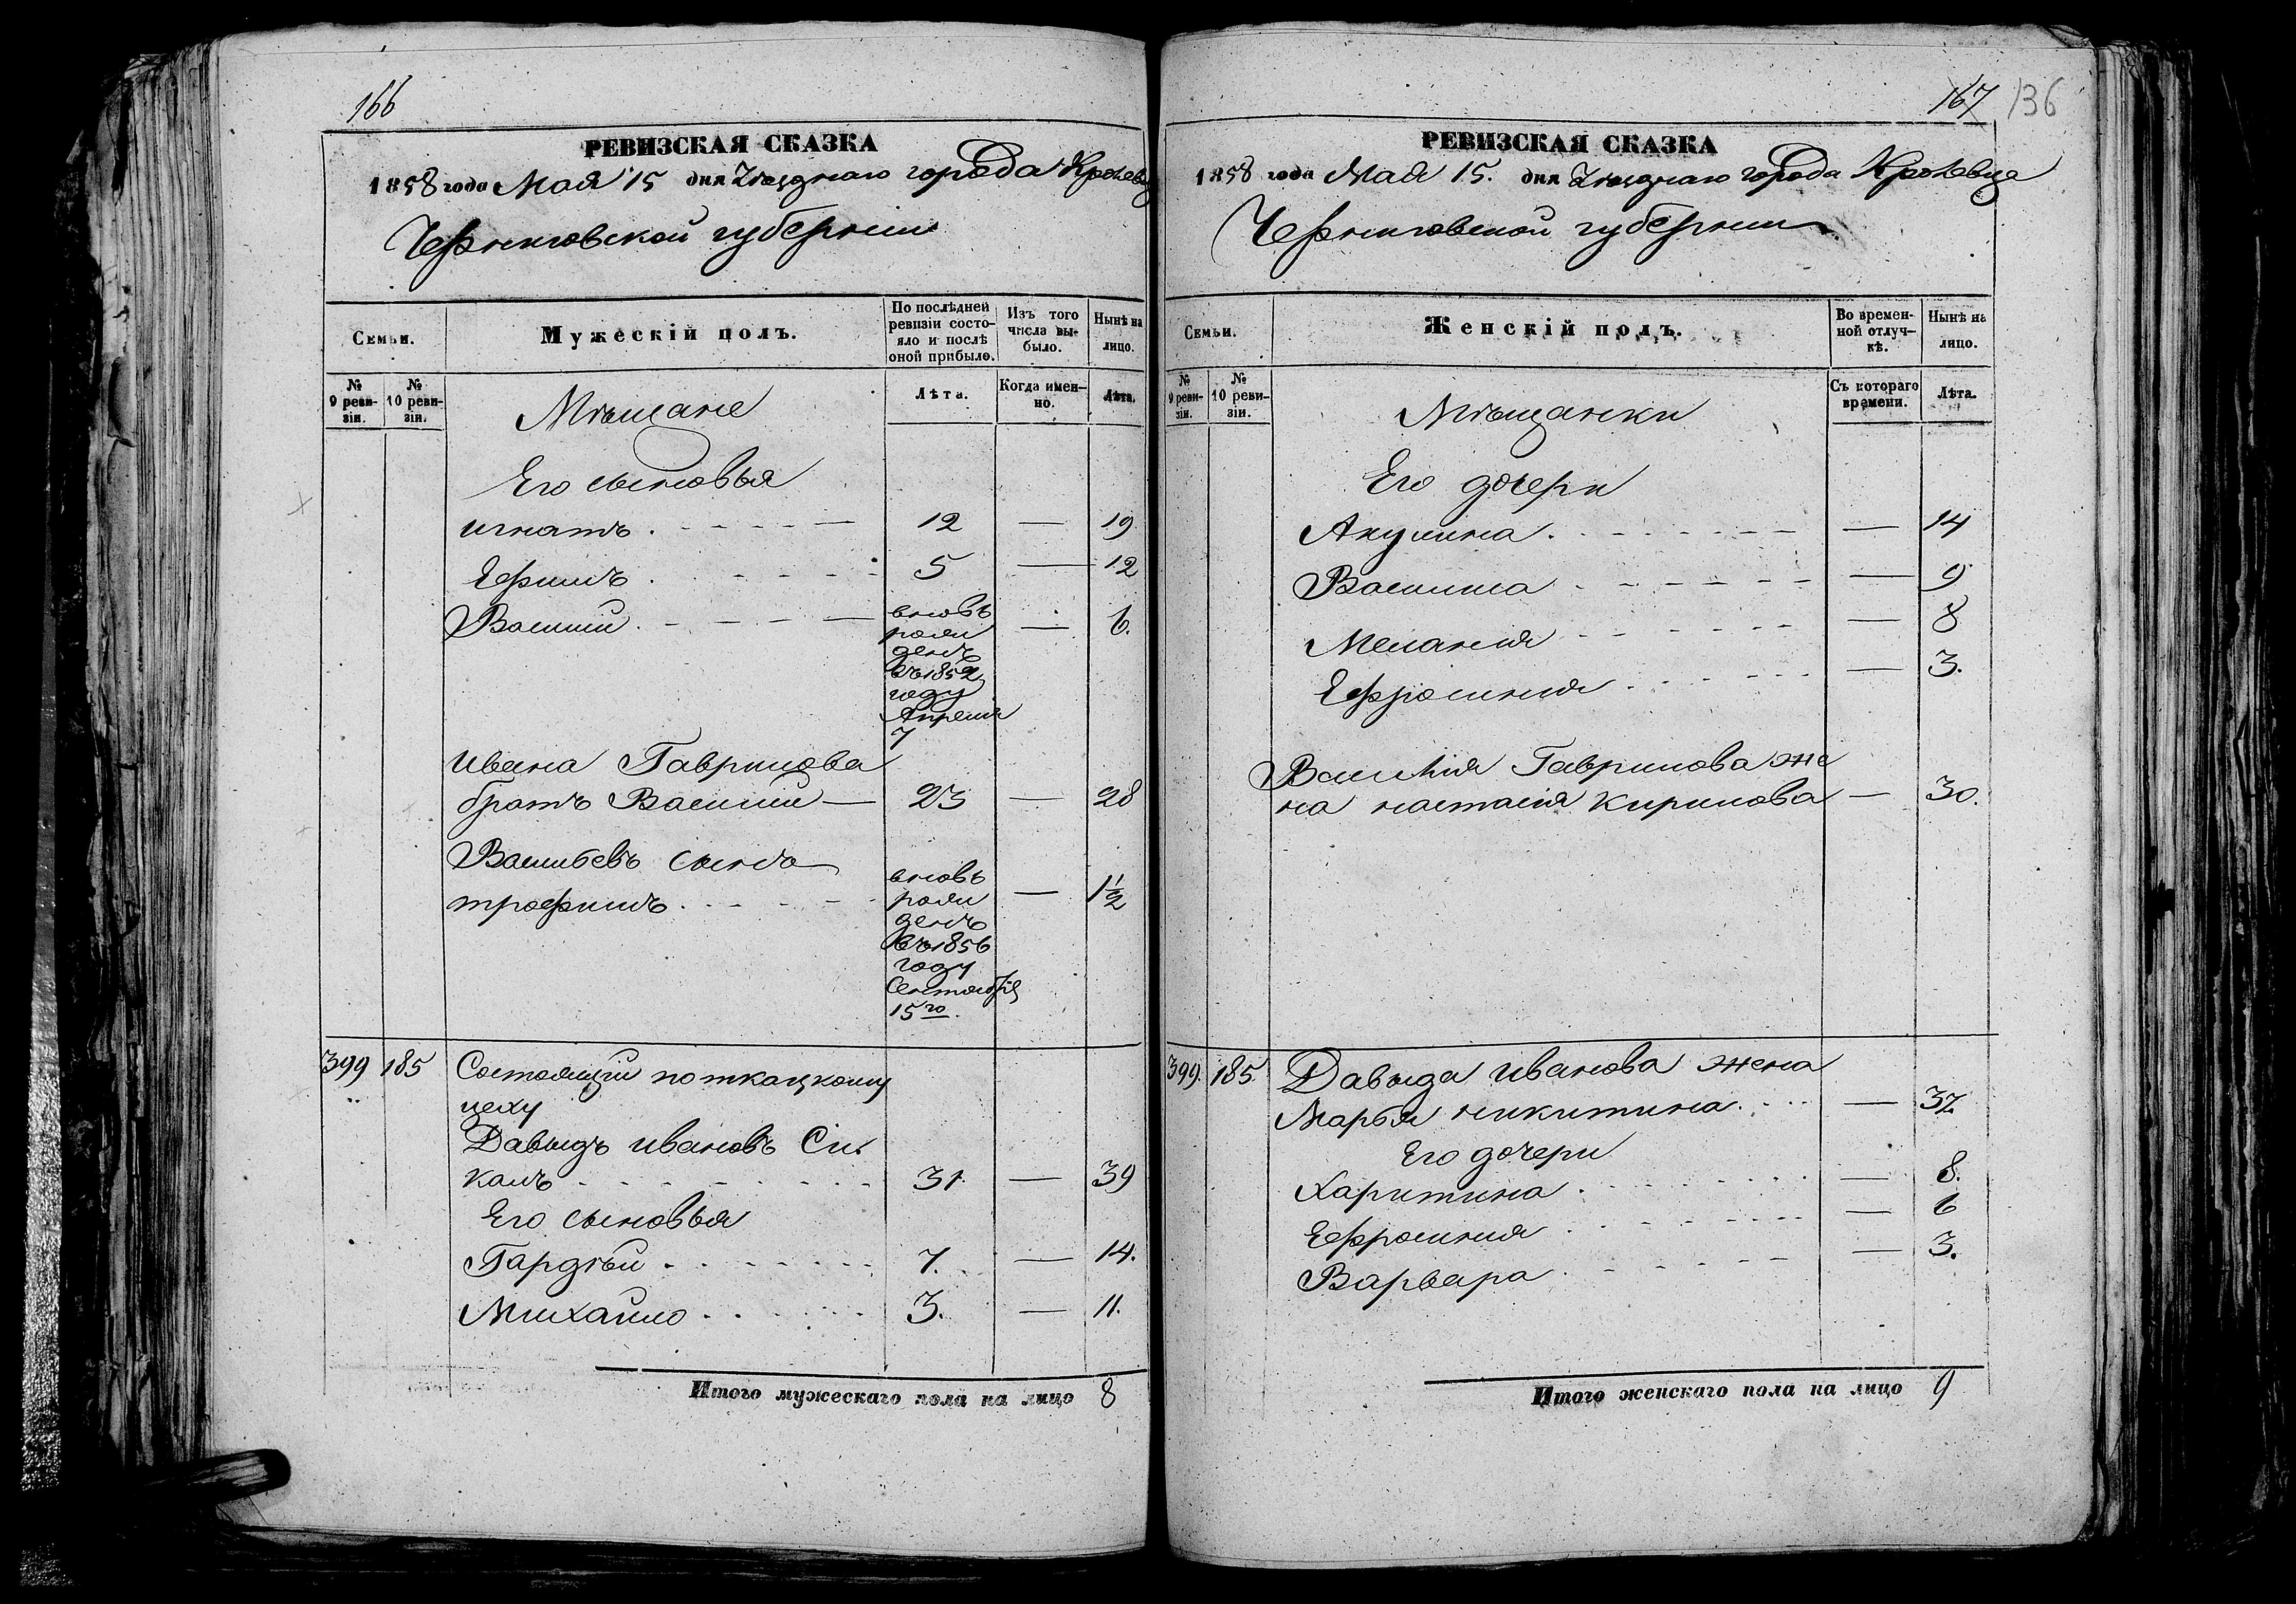 166
РЕВИЗСКАЯ СКАЗКА
1858 года Мая 15 дня Уѣзднаго города Кролевца
Черниговской губерніи
Семьи.
Мужескій полъ.
По послѣдней ревизіи состояло и послѣ оной прибыло.
Изъ того числа выбыло.
Нынѣ на лицо.
№ 9 ревизіи.
№ 10 ревизіи.
Мѣщане
Лѣта.
Когда именно.
Лѣта.
Его сыновья
Игнатъ 12 — 19
Ефимъ 5 — 12
Василій — 6.
вновь
рож
денъ
въ 1852
году
Апреля
7
Ивана Гаврилова
братъ Василій — 23 — 28
Васильевъ сынъ
трофимъ — 1½
вновь
рож
денъ
въ 1856
году
Сентября
15го.
399 185 Состоящій по ткацкому
цеху
Давыдъ Ивановъ Си
калъ 31 — 39
Его сыновья
Гардѣй 7. — 14.
Михайло 3. — 11.
Итого мужескаго пола на лицо 8
167 136
РЕВИЗСКАЯ СКАЗКА
1858 года Мая 15. дня Уѣзднаго города Кролевца
Черниговской губерніи
Семьи.
Женскій полъ.
Во временной отлучкѣ.
Нынѣ на лицо.
№ 9 ревизіи.
№ 10 ревизіи.
Мѣщанки
Съ котораго времени.
Лѣта.
Его дочери
Акулина — 14
Василиса — 9
Меланія — 8
Ефросинія — 3.
Василія Гаврилова же
на настасія Кирилова — 30.
399. 185. Давыда Иванова жена
Марья никитина — 37
Его дочери
Харитина — 8.
Ефросинія — 6
Варвара — 3.
Итого женскаго пола на лицо 9